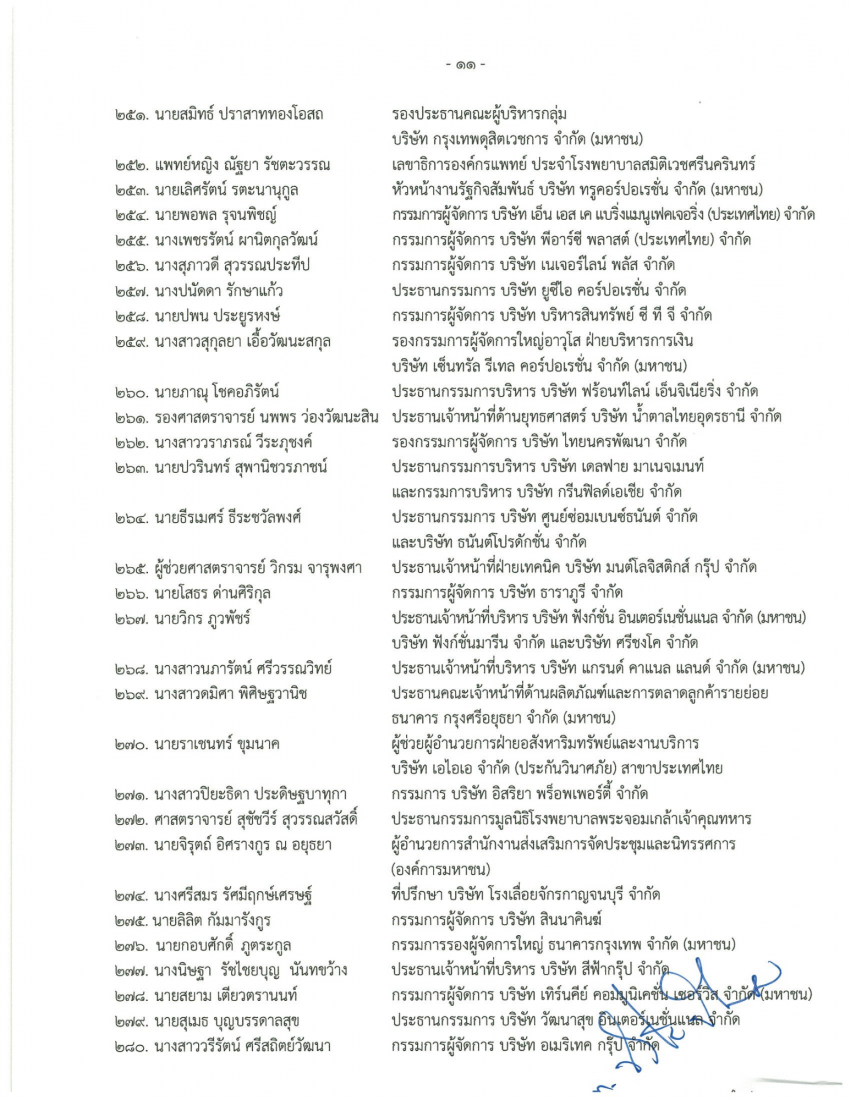 - ๑๑ -
๒๕๑. นายสมิทธ์ ปราสาททองโอสถ รองประธานคณะผู้บริหารกลุ่ม
บริษัท กรุงเทพดุสิตเวชการ จำกัด (มหาชน)
๒๕๒. แพทย์หญิง ณัฐยา รัชตะวรรณ เลขาธิการองค์กรแพทย์ ประจำโรงพยาบาลสมิติเวชศรีนครินทร์
๒๕๓. นายเลิศรัตน์ รตะนานุกูล หัวหน้างานรัฐกิจสัมพันธ์ บริษัท ทรูคอร์ปอเรชั่น จำกัด (มหาชน)
๒๕๔. นายพอพล รุจนพิชญ์ กรรมการผู้จัดการ บริษัท เอ็น เอส เค แบริ่งแมนูเฟคเจอริ่ง (ประเทศไทย) จำกัด
๒๕๕. นางเพชรรัตน์ ผานิตกุลวัฒน์ กรรมการผู้จัดการ บริษัท พีอาร์ซี พลาสต์ (ประเทศไทย) จำกัด
๒๕๖. นางสุภาวดี สุวรรณประทีป กรรมการผู้จัดการ บริษัท เนเจอร์ไลน์ พลัส จำกัด
๒๕๗. นางปนัดดา รักษาแก้ว ประธานกรรมการ บริษัท ยูซีไอ คอร์ปอเรชั่น จำกัด
๒๕๘. นายปพน ประยูรหงษ์ กรรมการผู้จัดการ บริษัท บริหารสินทรัพย์ ซี ที จี จำกัด
๒๕๙. นางสาวสุกุลยา เอื้อวัฒนะสกุล รองกรรมการผู้จัดการใหญ่อาวุโส ฝ่ายบริหารการเงิน
บริษัท เซ็นทรัล รีเทล คอร์ปอเรชั่น จำกัด (มหาชน)
๒๖๐. นายภาณุ โชคอภิรัตน์ ประธานกรรมการบริหาร บริษัท ฟร้อนท์ไลน์ เอ็นจิเนียริ่ง จำกัด
๒๖๑. รองศาสตราจารย์ นพพร ว่องวัฒนะสิน ประธานเจ้าหน้าที่ด้านยุทธศาสตร์ บริษัท น้ำตาลไทยอุดรธานี จำกัด
๒๖๒. นางสาววราภรณ์ วีระภุชงค์ รองกรรมการผู้จัดการ บริษัท ไทยนครพัฒนา จำกัด
๒๖๓. นายปวรินทร์ สุพานิชวรภาชน์ ประธานกรรมการบริหาร บริษัท เดลฟาย มาเนจเมนท์
และกรรมการบริหาร บริษัท กรีนฟิลด์เอเชีย จำกัด
๒๖๔. นายธีรเมศร์ ธีระชวัลพงศ์ ประธานกรรมการ บริษัท ศูนย์ซ่อมเบนซ์ธนันต์ จำกัด
และบริษัท ธนันต์โปรดักชั่น จำกัด
๒๖๕. ผู้ช่วยศาสตราจารย์ วิกรม จารุพงศา ประธานเจ้าหน้าที่ฝ่ายเทคนิค บริษัท มนต์โลจิสติกส์ กรุ๊ป จำกัด
๒๖๖. นายโสธร ด่านศิริกุล กรรมการผู้จัดการ บริษัท ธาราภูรี จำกัด
๒๖๗. นายวิกร ภูวพัชร์ ประธานเจ้าหน้าที่บริหาร บริษัท ฟังก์ชั่น อินเตอร์เนชั่นแนล จำกัด (มหาชน)
บริษัท ฟังก์ชั่นมารีน จำกัด และบริษัท ศรีชงโค จำกัด
๒๖๘. นางสาวนภารัตน์ ศรีวรรณวิทย์ ประธานเจ้าหน้าที่บริหาร บริษัท แกรนด์ คาแนล แลนด์ จำกัด (มหาชน)
๒๖๙. นางสาวดมิศา พิศิษฐวานิช ประธานคณะเจ้าหน้าที่ด้านผลิตภัณฑ์และการตลาดลูกค้ารายย่อย
ธนาคาร กรุงศรีอยุธยา จำกัด (มหาชน)
๒๗๐. นายราเชนทร์ ขุมนาค ผู้ช่วยผู้อำนวยการฝ่ายอสังหาริมทรัพย์และงานบริการ
บริษัท เอไอเอ จำกัด (ประกันวินาศภัย) สาขาประเทศไทย
๒๗๑. นางสาวปิยะธิดา ประดิษฐบาทุกา กรรมการ บริษัท อิสริยา พร็อพเพอร์ตี้ จำกัด
๒๗๒. ศาสตราจารย์ สุชัชวีร์ สุวรรณสวัสดิ์ ประธานกรรมการมูลนิธิโรงพยาบาลพระจอมเกล้าเจ้าคุณทหาร
๒๗๓. นายจิรุตถ์ อิศรางกูร ณ อยุธยา ผู้อำนวยการสำนักงานส่งเสริมการจัดประชุมและนิทรรศการ
(องค์การมหาชน)
๒๗๔. นางศรีสมร รัศมีฤกษ์เศรษฐ์ ที่ปรึกษา บริษัท โรงเลื่อยจักรกาญจนบุรี จำกัด
๒๗๕. นายลิลิต กัมมารังกูร กรรมการผู้จัดการ บริษัท สินนาคินฆ์
๒๗๖. นายกอบศักดิ์ ภูตระกูล กรรมการรองผู้จัดการใหญ่ ธนาคารกรุงเทพ จำกัด (มหาชน)
๒๗๗. นางนิษฐา รัชไชยบุญ นันทขว้าง ประธานเจ้าหน้าที่บริหาร บริษัท สีฟ้ากรุ๊ป จำกัด
๒๗๘. นายสยาม เตียวตรานนท์ กรรมการผู้จัดการ บริษัท เทิร์นคีย์ คอมมูนิเคชั่น เซอร์วิส จำกัด (มหาชน)
๒๗๙. นายสุเมธ บุญบรรดาลสุข ประธานกรรมการ บริษัท วัฒนาสุข อินเตอร์เนชั่นแนล จำกัด
๒๘๐. นางสาววรีรัตน์ ศรีสถิตย์วัฒนา กรรมการผู้จัดการ บริษัท อเมริเทค กรุ๊ป จำกัด